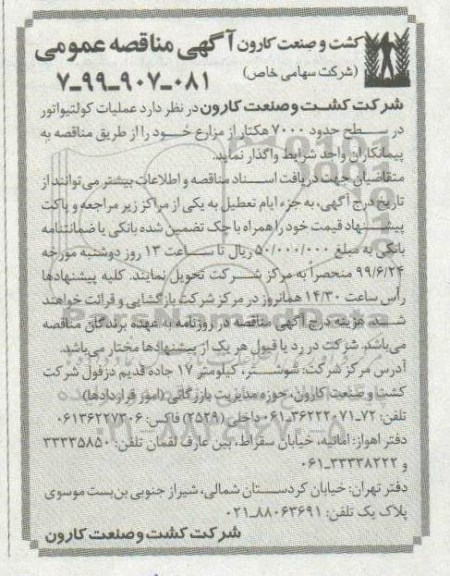 کشت و صنعت کارون آگهی مناقصه عمومی
(شرکت سهامی خاص)
۷-۹۹-۹۰۷-۰۸۱
شرکت کشت و صنعت کارون در نظر دارد عملیات کولتیواتور
در سطح حدود ۷۰۰۰ هکتار از مزارع خود را از طریق مناقصه به
پیمانکاران واجد شرایط واگذار نماید.
متقاضیان جهت دریافت اسناد مناقصه و اطلاعات بیشتر می‌توانند از
تاریخ درج آگهی، به جزء ایام تعطیل به یکی از مراکز زیر مراجعه و پاکت
پیشنهاد قیمت خود را همراه با چک تضمین شده بانکی یا ضمانتنامه
بانکی به مبلغ ۵۰/۰۰۰/۰۰۰ ریال تا ساعت ۱۳ روز دوشنبه مورخه
۹۹/۶/۲۴ منحصراً به مرکز شرکت تحویل نمایند. کلیه پیشنهادها
رأس ساعت ۱۴/۳۰ همانروز در مرکز شرکت بازگشایی و قرائت خواهند
شد. هزینه درج آگهی مناقصه در روزنامه به عهده برندگان مناقصه
می‌باشد. شرکت در رد یا قبول هر یک از پیشنهادها مختار می‌باشد.
آدرس مرکز شرکت: شوشتر، کیلومتر ۱۷ جاده قدیم دزفول شرکت
کشت و صنعت کارون، حوزه مدیریت بازرگانی (امور قراردادها)
تلفن: ۷۲-۳۶۲۲۲۰۷۱-۰۶۱ داخلی (۲۵۳۹) فاکس: ۰۶۱۳۶۲۲۷۳۰۶
دفتر اهواز: امانیه، خیابان سقراط، بین عارف لقمان تلفن: ۳۳۳۳۵۸۵۰
و ۳۳۳۳۸۲۲۲-۰۶۱
دفتر تهران: خیابان کردستان شمالی، شیراز جنوبی بن‌بست موسوی
پلاک یک تلفن: ۸۸۰۶۳۶۹۱-۰۲۱
شرکت کشت و صنعت کارون
ParsNamadData